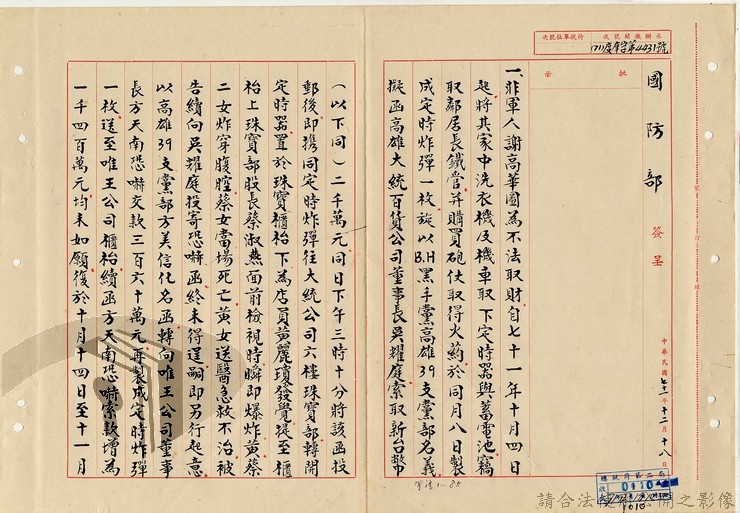 承辦機關號次
(71)慶孝字第4431號
待從單位號次
批示
國防部簽呈
中華民國七十一年十二月十八日
一、非軍人謝高華圖為不法取財自七十一年十月四日
起將其家中洗衣機及機車取下定時器與蓄電池竊
取鄰居長鐵管并購買砲仗取得火葯於同月八日製
成定時炸彈一枚旋以B.H黑手黨高雄39支黨部名義
擬函高雄大統百貨公司董事長吳耀庭索取新台幣
(以下同)二千萬元同日下午三時十分將該函投
郵後即携同定時炸彈往大統公司六樓珠寶部轉開
定時器置於珠寶櫃枱下為店員黃麗瓊發覺提至櫃
枱上珠寶部股長蔡淑燕面前檢視時瞬即爆炸黃蔡
二女炸穿腹腔蔡女當場死亡黃女送醫急救不治被
告續向吳耀庭投寄恐嚇函終未得逞嗣即另行起意
以高雄39支黨部方美信化名函轉向唯王公司董事
長方天南恐嚇交款三百六十萬元再製成定時炸彈
一枚送至唯王公司櫃枱續函方天南恐嚇索款增為
一千四百萬元均未如願復於十月十四日至十一月
軍法1-85
總統府第二局
請合法使用公開之影像